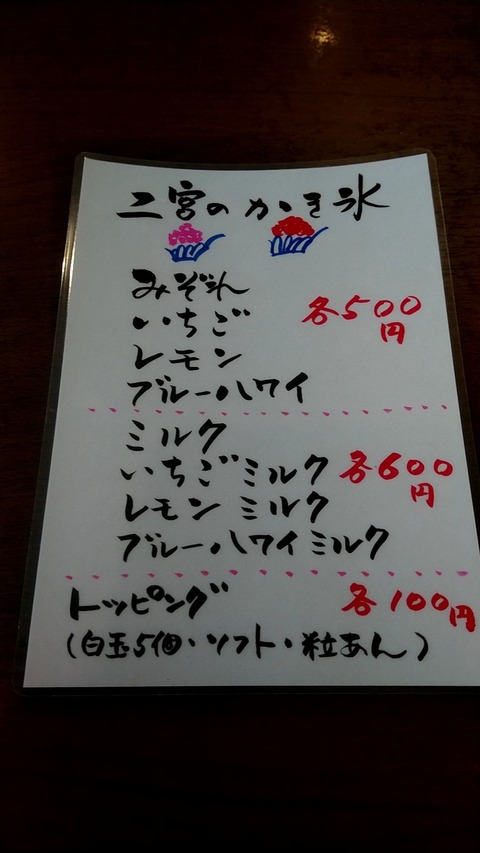 二宮のかき氷
みぞれ
いちご
レモン
ブルーハワイ
各500円
ミルク
いちごミルク
レモンミルク
ブルーハワイミルク
各600円
トッピング 各100円
(白玉5個・ソフト・粒あん)